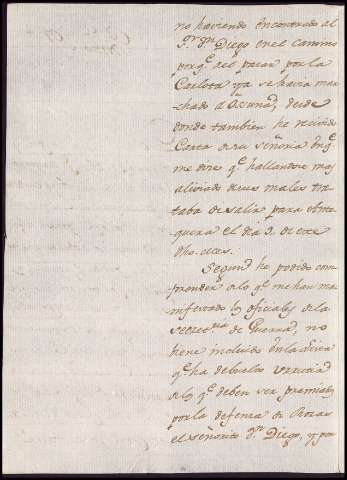 no haviendo encontrado al
S.r D.n Diego en el camino
porq.e al pasar por la
Carlota ya se havia mar
chado a Osuna, desde
donde tambien he recivido
Carta de su señoria en q.e
me dice q.e hallandose mas
aliviado de sus males tra
taba de salir para Ante
quera el dia 9. de este
dho. mes.
Segun he podido com
prender de lo q.e me han ma
nifestado los oficiales de la
Secret.ria de Guerra, no
tiene incluido en la lista
q.e ha debuelto Urrutia
de los q.e deben ser premiados
por la defensa de Rosas
el señorito D.n Diego, y por